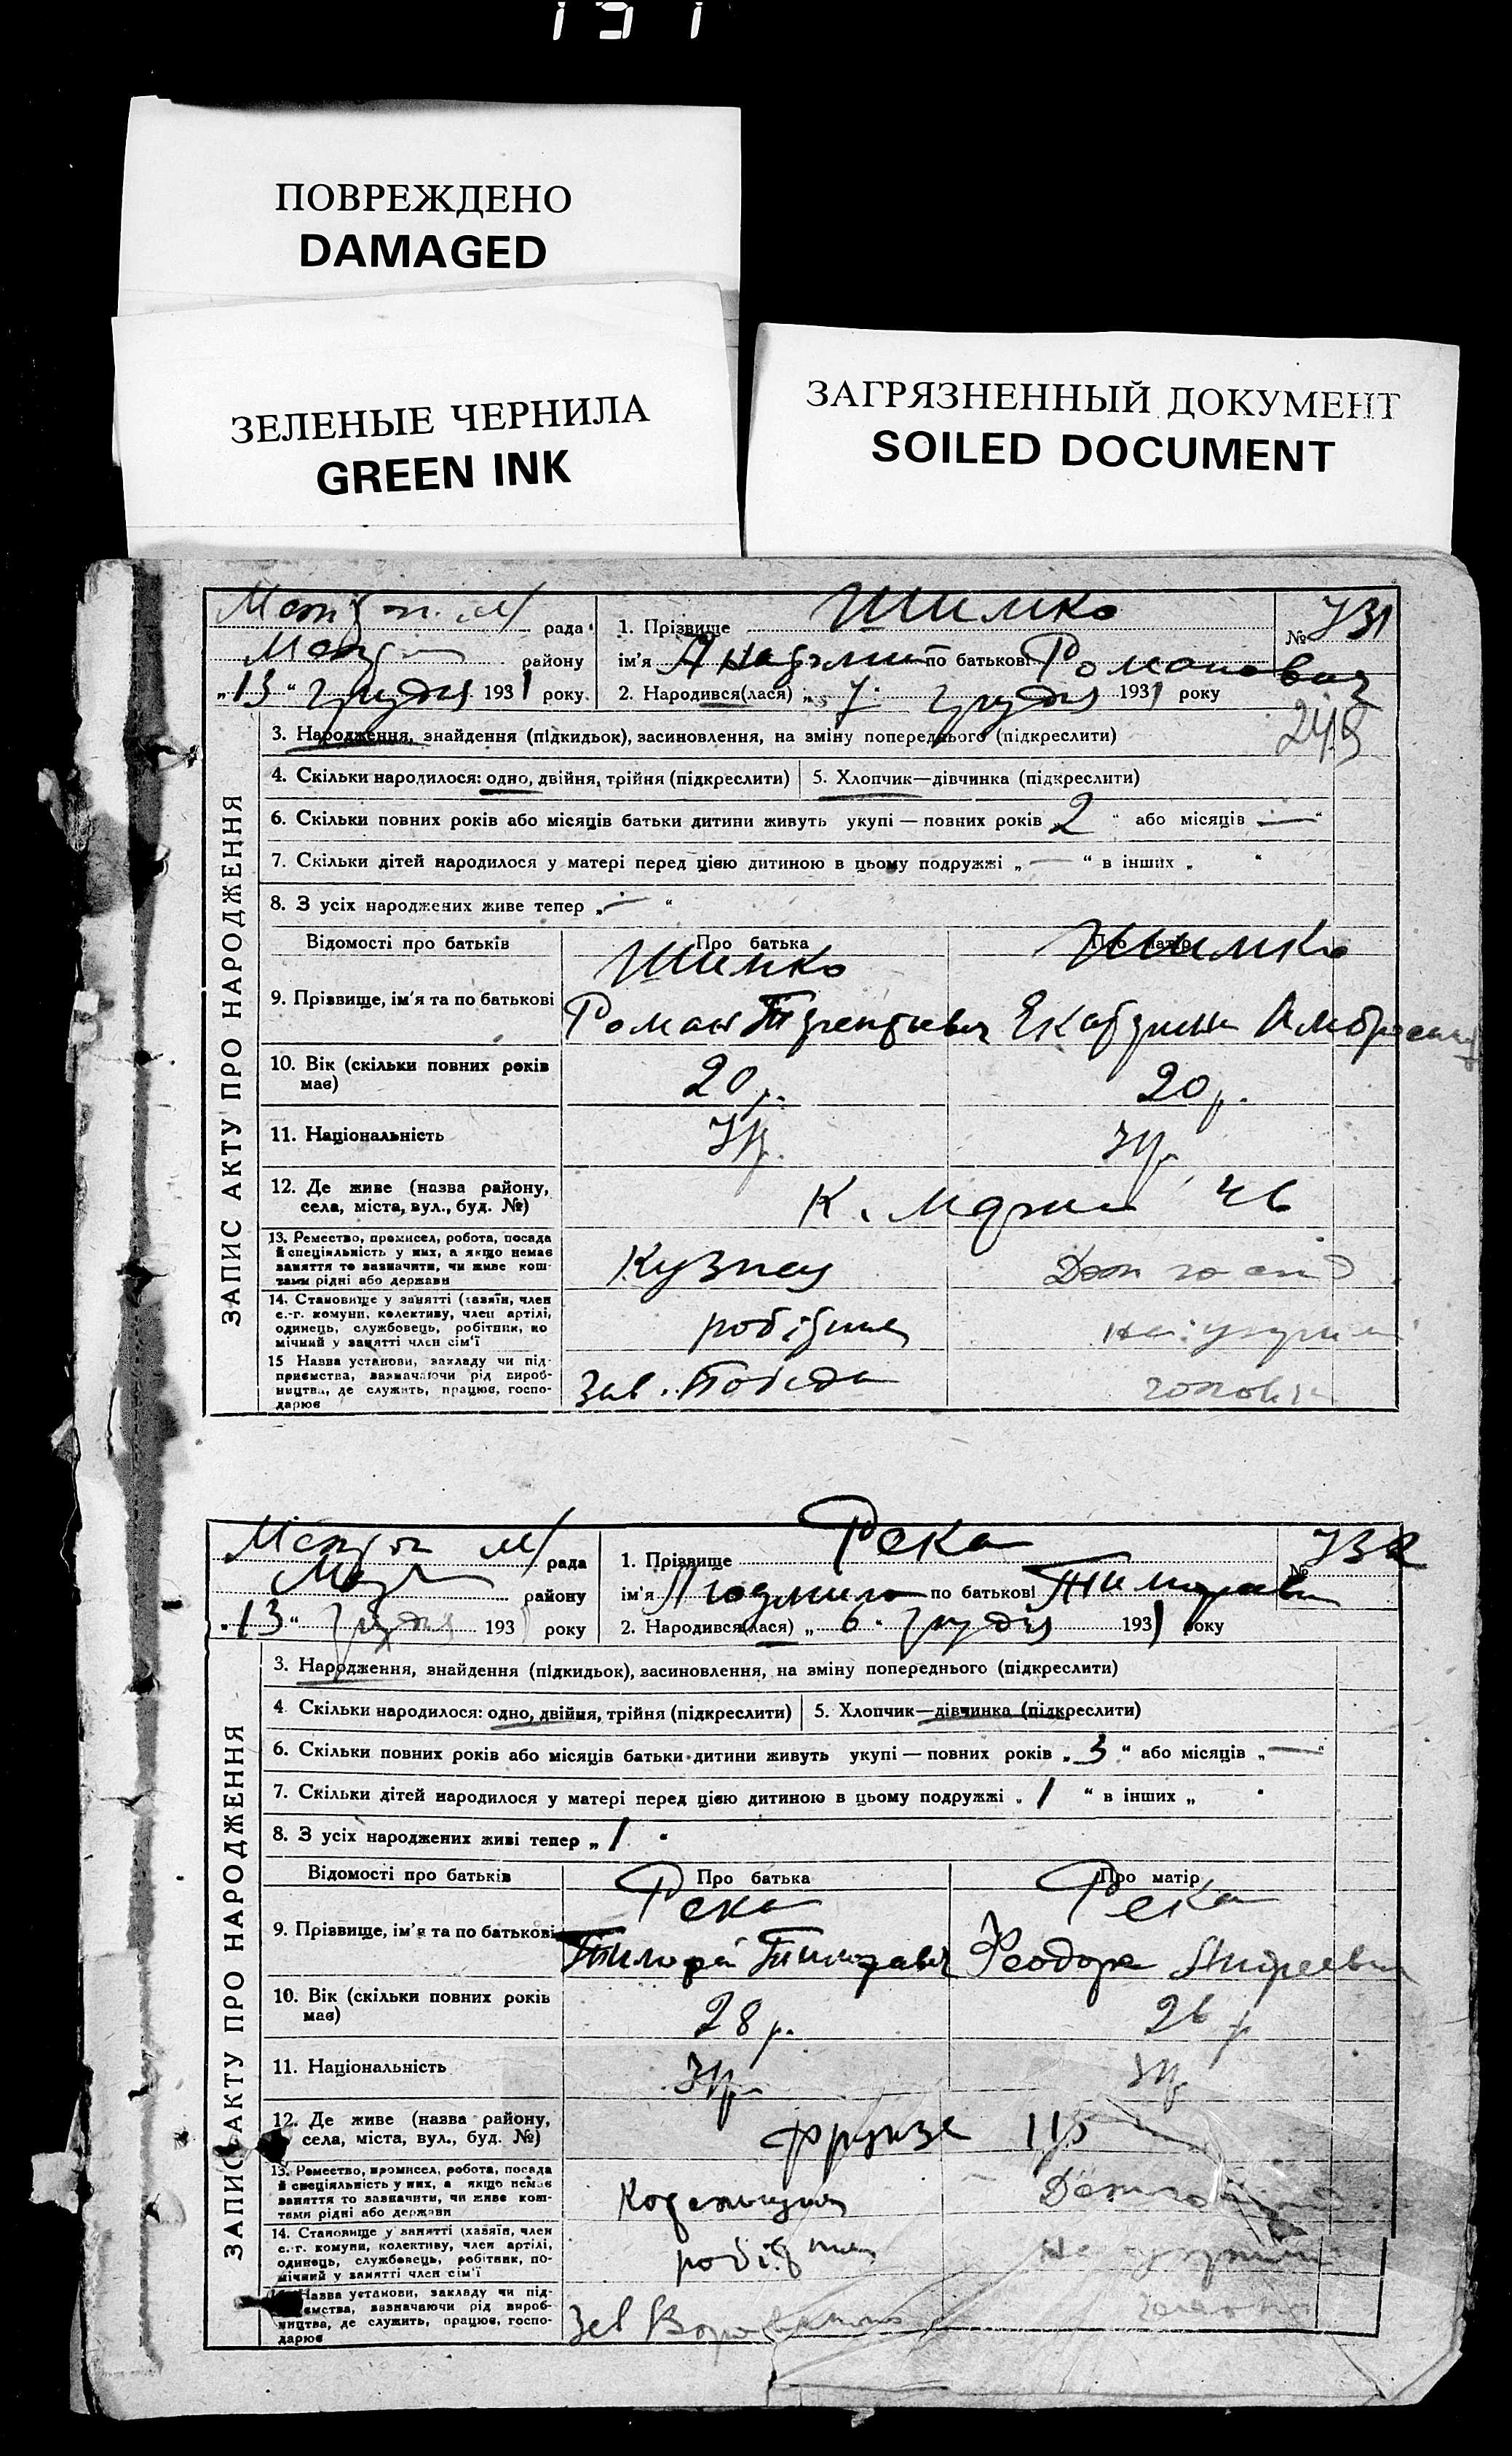 ПОВРЕЖДЕНО
DAMAGED
ЗЕЛЕНЫЕ ЧЕРНИЛА
GREEN INK
ЗАГРЯЗНЕННЫЙ ДОКУМЕНТ
SOILED DOCUMENT
рада
1. Прізвище Шимко
№ 731
району
ім'я по батькові Романович
„13“ грудня 1931 року.
2. Народився(лася) „7“ грудня 1931 року
248
3. Народження, знайдення (підкидьок), засиновлення, на зміну попереднього (підкреслити)
4. Скільки народилося: одно, двійня, трійня (підкреслити)
5. Хлопчик—дівчинка (підкреслити)
6. Скільки повних років або місяців батьки дитини живуть укупі — повних років „2“ або місяців „—“
7. Скільки дітей народилося у матері перед цією дитиною в цьому подружжі „—“ в інших „ “
8. З усіх народжених живе тепер „—“
ЗАПИС АКТУ ПРО НАРОДЖЕННЯ
Відомості про батьків
Про батька
Про матір
Шимко
Шимко
9. Прізвище, ім'я та по батькові
Роман
10. Вік (скільки повних років має)
20 р.
20 р.
11. Національність
Укр.
Укр.
12. Де живе (назва району, села, міста, вул., буд. №)
К. 46
13. Ремество, промисел, робота, посада й спеціяльність у них, а якщо немає заняття то зазначити, чи живе коштами рідні або держави
Кузнец
14. Становище у занятті (хазяїн, член с.-г. комуни, колективу, член артілі, одинець, службовець, робітник, помічний у занятті член сім'ї
15 Назва установи, закладу чи підприємства, зазначаючи рід виробництва, де служить, працює, господарює
Зав. Победа
рада
1. Прізвище Река
№ 732
району
ім'я Людмила по батькові
„13“ грудня 193 року
2. Народився(лася) „6“ грудня 1931 року
3. Народження, знайдення (підкидьок), засиновлення, на зміну попереднього (підкреслити)
4 Скільки народилося: одно, двійня, трійня (підкреслити)
5. Хлопчик—дівчинка (підкреслити)
6. Скільки повних років або місяців батьки дитини живуть укупі — повних років „3“ або місяців „—“
7. Скільки дітей народилося у матері перед цією дитиною в цьому подружжі „1“ в інших „ “
8. З усіх народжених живі тепер „1“
ЗАПИС АКТУ ПРО НАРОДЖЕННЯ
Відомості про батьків
Про батька
Про матір
Река
Река
9. Прізвище, ім'я та по батькові
Феодора Андреевна
10. Вік (скільки повних років має)
28 р.
26 р
11. Національність
Укр.
Укр
12. Де живе (назва району, села, міста, вул., буд. №)
Фрунзе 115
13. Ремество, промисел, робота, посада й спеціяльність у них, а якщо немає заняття то зазначити, чи живе коштами рідні або держави
14. Становище у занятті (хазяїн, член с.-г. комуни, колективу, член артілі, одинець, службовець, робітник, помічний у занятті член сім'ї
Назва установи, закладу чи підприємства, зазначаючи рід виробництва, де служить, працює, господарює